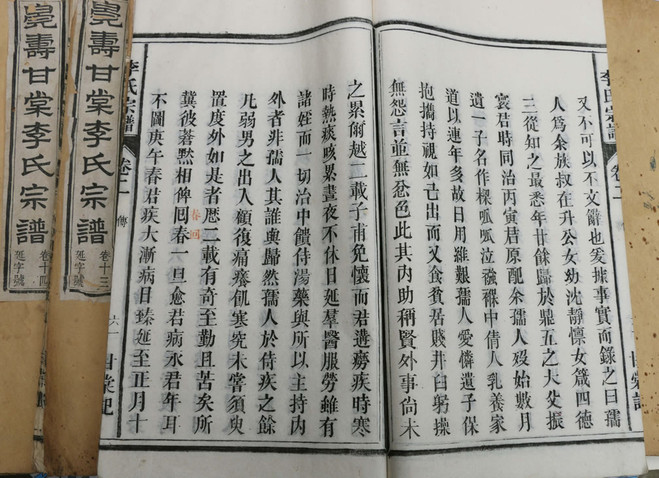 李氏宗譜
卷二
甘棠記
又不可以不文辭也爰據事實而錄之曰孺
人爲余族叔在升公女幼沈靜懍女箴四德
三從知之最悉年廿餘歸於鼎五之大㕝振
寰君時同治丙寅居原配余孺人歿始數月
遺一子名作樑呱呱泣襁褓中倩人乳養家
道以連年多故日用維艱孺人愛憐遺子保
抱攜持視如己出而又食貧居賤井臼躬操
無怨言並無忿色此其內助稱賢外事尚未
之累俯越二載子甫免懷而君遘癆疾時寒
時熱痰咳累晝夜不休日延羣醫服勞雖有
諸姪而一切治中饋侍湯藥與所以主持內
外者非孺人其誰與歸然孺人於侍疾之餘
凡弱男之出入顧復痛癢飢寒究未嘗須臾
置度外如是者歷二載有奇至勤且苦矣所
春回
冀彼蒼黙相俾囘春一旦愈君病永君年耳
不圖庚午春君疾大漸病日臻延至正月十
李氏宗譜
卷二
傳
六一
甘棠記
壽甘棠李氏宗譜
卷十三
延字號
壽甘棠李氏宗譜
卷十四
延字號